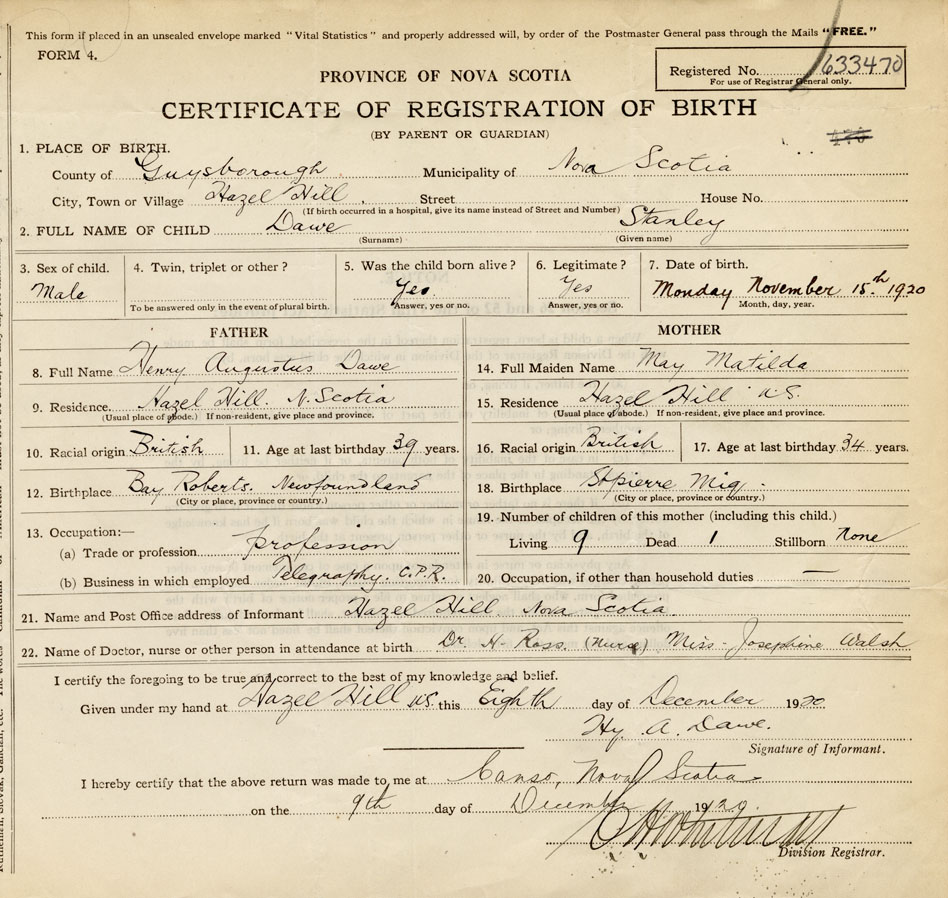 This form if placed in an unsealed envelope marked "Vital Statistics" and properly addressed will, by order of the Postmaster General pass through the Mails "FREE."
FORM 4.
PROVINCE OF NOVA SCOTIA
Registered No. 633470
For use of Registrar General only.
CERTIFICATE OF REGISTRATION OF BIRTH
(BY PARENT OR GUARDIAN)
1. PLACE OF BIRTH.
County of Guysborough Municipality of Nova Scotia
City, Town or Village Hazel Hill. Street House No.
(If birth occurred in a hospital, give its name instead of Street and Number)
2. FULL NAME OF CHILD Dawe Stanley
(Surname) (Given name)
3. Sex of child. 4. Twin, triplet or other? 5. Was the child born alive? 6. Legitimate? 7. Date of birth.
Male Yes Yes Monday November 15th 1920
To be answered only in the event of plural birth. Answer, yes or no. Answer, yes or no. Month, day, year.
FATHER MOTHER
8. Full Name Henry Augustus Dawe 14. Full Maiden Name May Matilda
9. Residence. Hazel Hill. N. Scotia 15. Residence Hazel Hill N.S.
(Usual place of abode.) If non-resident, give place and province. (Usual place of abode.) If non-resident, give place and province.
10. Racial origin British 11. Age at last birthday 39 years. 16. Racial origin British 17. Age at last birthday 34 years.
12. Birthplace Bay Roberts. Newfoundland 18. Birthplace St pierre Miq.
(City or place, province or country.) (City or place, province or country.)
13. Occupation:— 19. Number of children of this mother (including this child.)
(a) Trade or profession profession Living 9 Dead 1 Stillborn None
(b) Business in which employed Telegraphy. C.P.R. 20. Occupation, if other than household duties —
21. Name and Post Office address of Informant Hazel Hill Nova Scotia.
22. Name of Doctor, nurse or other person in attendance at birth Dr. H. Ross. (Nurse) Miss Josephine Walsh
I certify the foregoing to be true and correct to the best of my knowledge and belief.
Given under my hand at Hazel Hill N.S. this Eighth day of December 1920.
Hy. A. Dawe.
Signature of Informant.
I hereby certify that the above return was made to me at Canso, Nova Scotia
on the 9th day of December 1920.
Division Registrar.